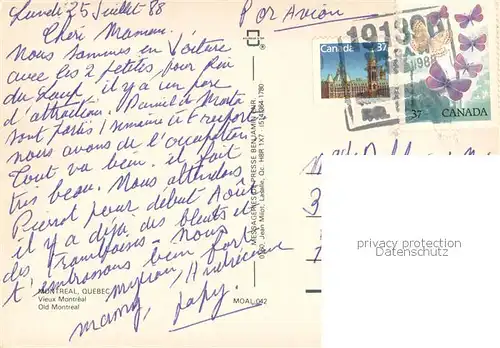 Lundi 25 Juillet 88
Par Avion
Chère Maman.
Nous sommes en Voiture
avec les 2 petites pour Riv
du Loup il y a un parc
d'attraction. Daniel et
sont partis 1 semaine et
nous avons de l'occupation
Tout va bien. il fait
très beau. Nous attendons
Pierrot pour début Août
il y a déjà des bleuets et
des framboises - Nous
t'embrassons bien fort
Andréenne
mamy, papy.
MONTRÉAL, QUÉBEC
Vieux Montréal
Old Montreal
MOAL 042
MESSAGERIES DE PRESSE BENJAMIN ENR.
Jean Milot, Lasalle, Qc H8R 1X7 (514) 364-1780
Canada 37
37 CANADA
privacy protection
Datenschutz